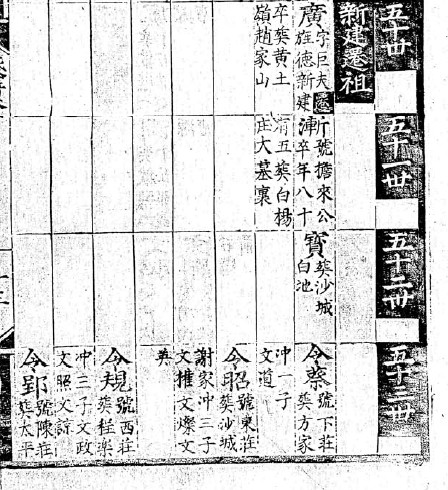 五十世
五十一世
五十二世
五十三世
新建遷祖
廣
字巨夫遷
旌德新建
卒葬黄土
嶺趙家山
漙
行號擔來公
卒年八十
有五葬白楊
庄大墓裏
寳
葬沙城
白池
令蔡
號下莊
葬方家
冲一子
文道
令昭
號東莊
葬沙城
謝家冲三子
文推文燦文
英
令規
號西莊
葬程梁
冲三子文政
文照文訢
令郢
號陳莊
葬太平